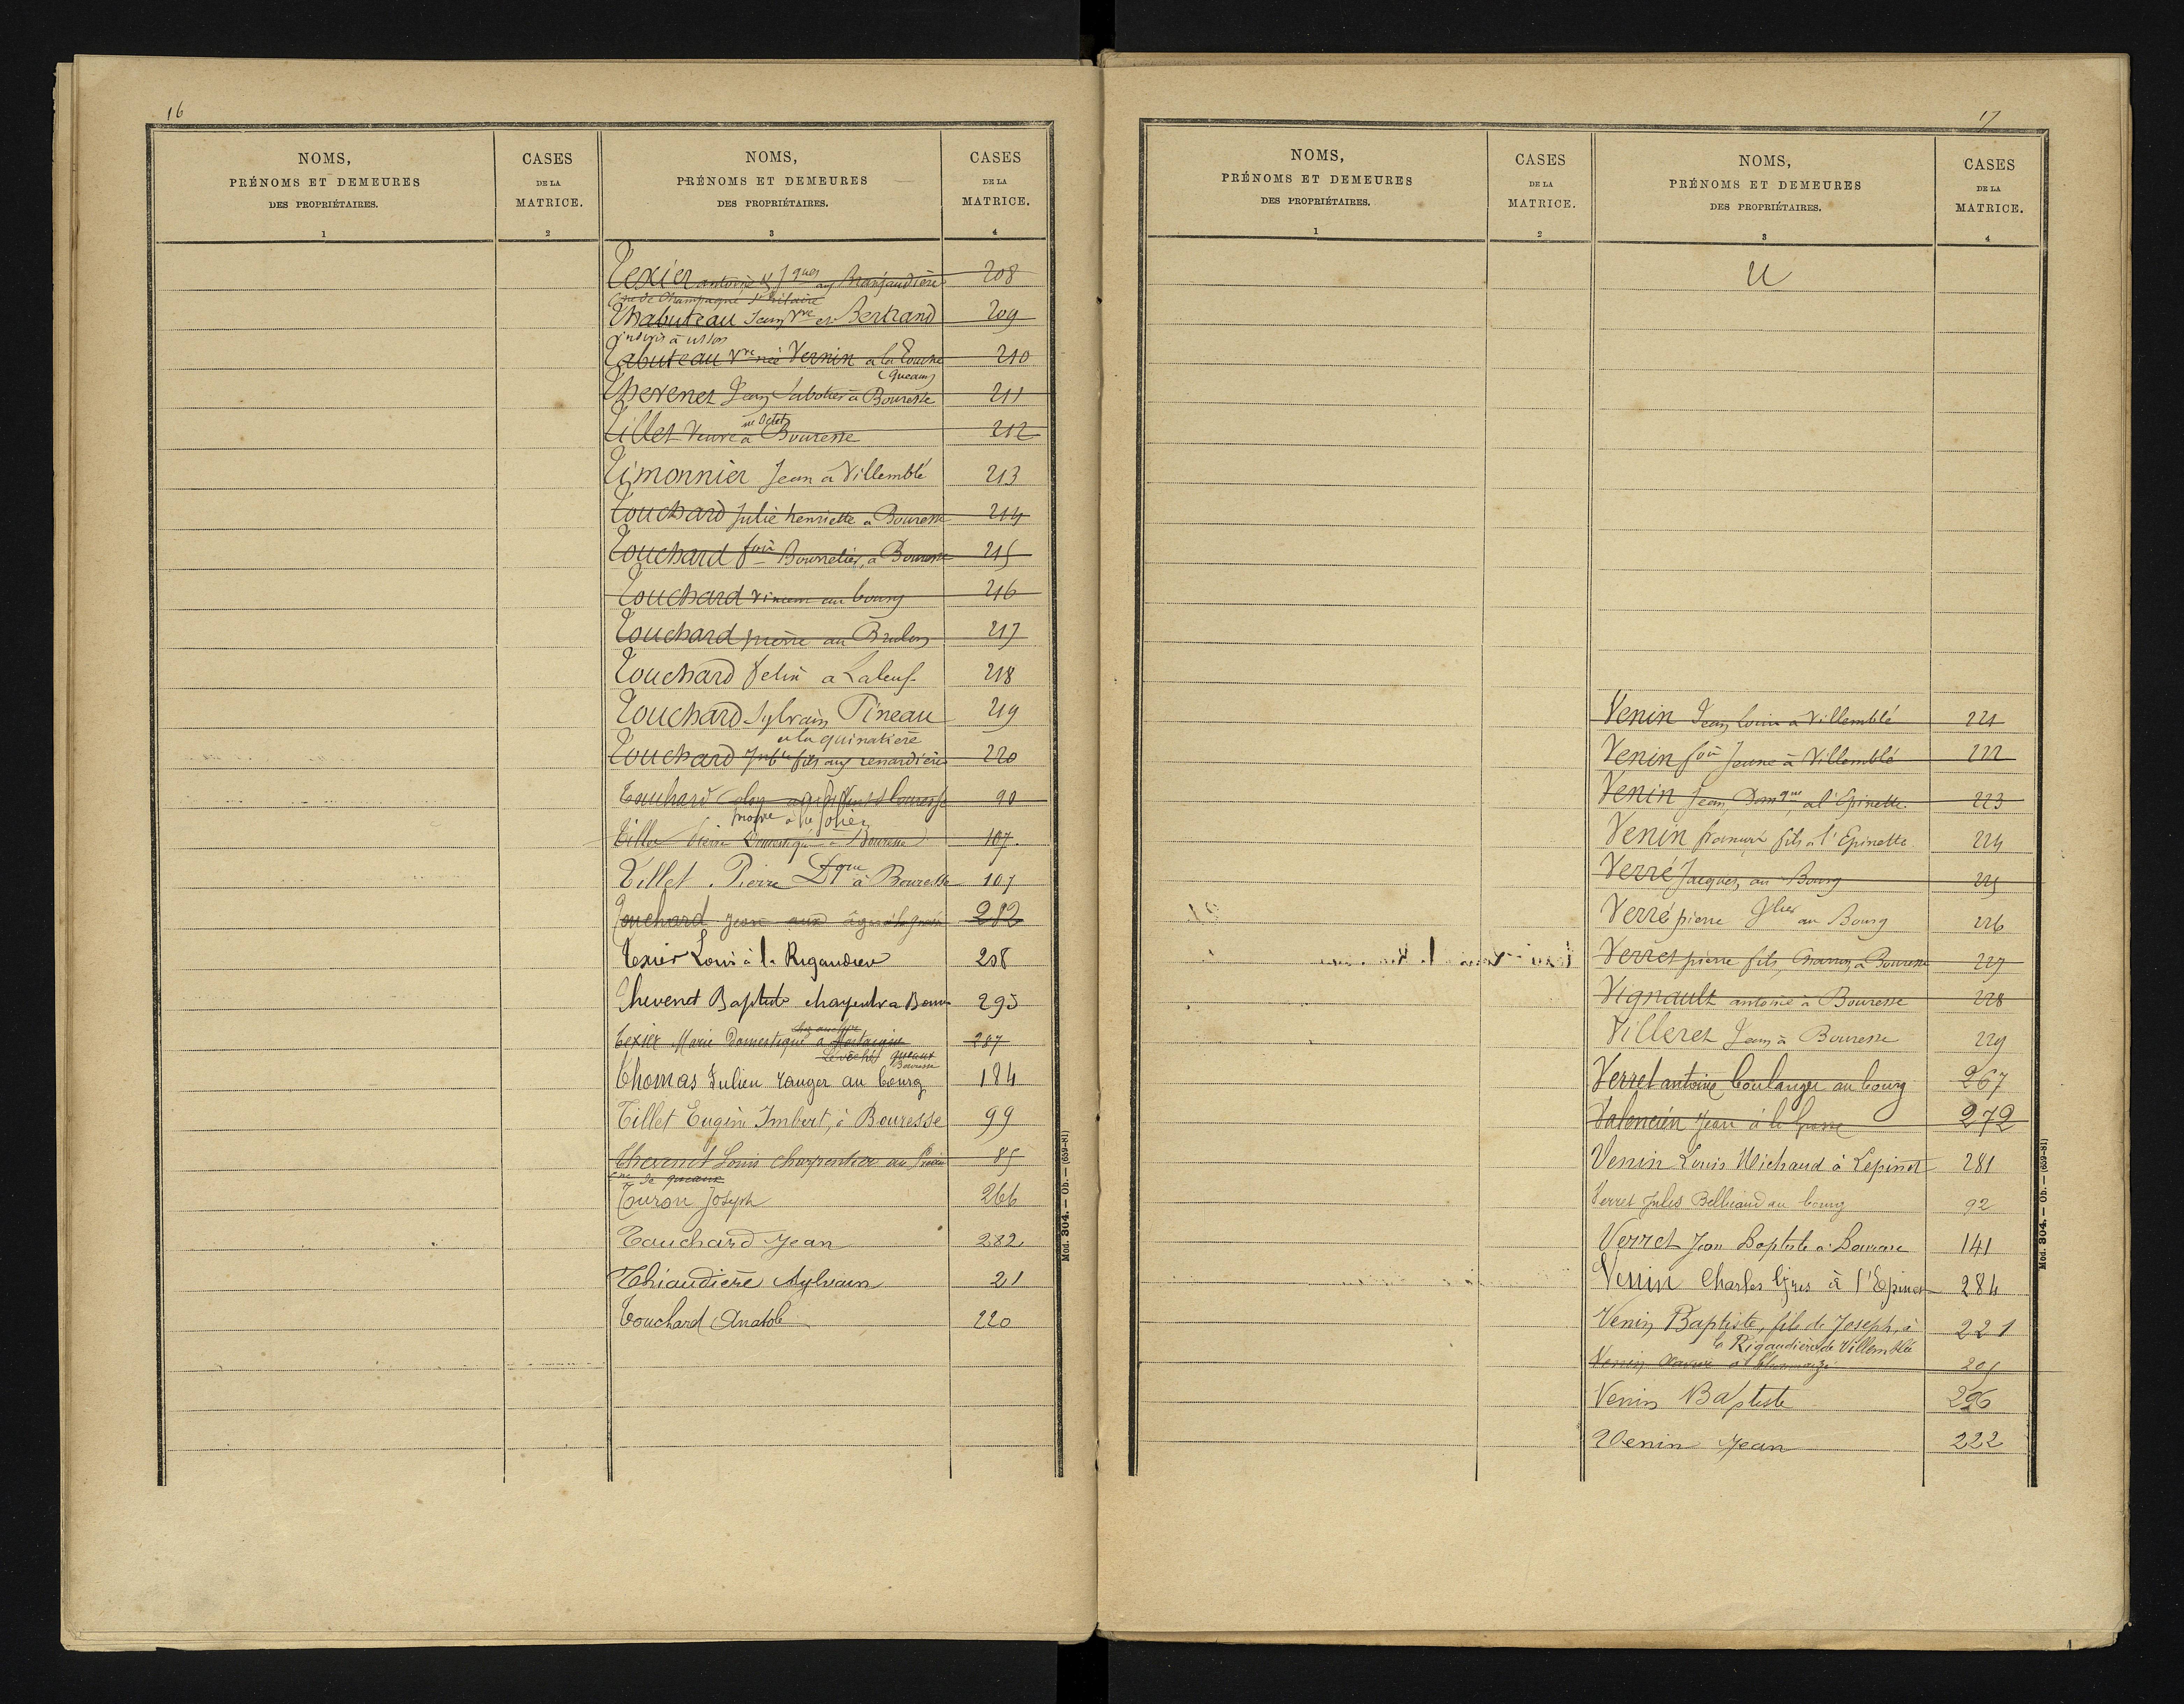 16
NOMS, PRÉNOMS ET DEMEURES DES PROPRIÉTAIRES. CASES DE LA MATRICE. NOMS, PRÉNOMS ET DEMEURES DES PROPRIÉTAIRES. CASES DE LA MATRICE.
1 2 3 4
Texier antoine & Jques aux 208
Cne de Champagne St hilaire
Thabuteau Jean vve et Bertrand 209
indivis à usson
Tabuteau vve née Vernin a la Touche 210
(queaux)
Thevenet Jean Sabotier à Bouresse 211
Tillet Veuve à Bouresse 212
Timonnier Jean à Villemblé 213
Touchard Julie henriette a Bouresse 214
Touchard fois Bourrelier, a Bouresse 215
Touchard vincent au bourg 216
Touchard pierre au Brulon 217
Touchard felix a Laleuf 218
Touchard Sylvain Pineau 219
a la quinatiere
Touchard fils aux renardières 220
Touchard 90
Tillet Pierre Domestique à Bouresse 107.
Tillet. Pierre Dque à Bouresse 107
Touchard Jean aux 282
Texier Louis à la Rigaudiere 208
Thevenet Baptiste a Bour 295
Texier Marie Domestique a 287
queaux
Bouresse
Thomas Julien rouger au bourg 184
Tillet Eugène Imbert, à Bouresse 99
Thevenet Louis Charpentier au 85
Cne de queaux
Touron Joseph 266
Touchard Jean 282
Thiaudière Sylvain 21
Touchard Anatole 220
Mod. 304. — Ob. — (659-81)
17
NOMS, PRÉNOMS ET DEMEURES DES PROPRIÉTAIRES. CASES DE LA MATRICE. NOMS, PRÉNOMS ET DEMEURES DES PROPRIÉTAIRES. CASES DE LA MATRICE.
1 2 3 4
U
Venin Jean louis à Villemblé 221
Venin fois Jeune à Villemblé 222
Venin Jean Domque a l'Epinette. 223
Venin fils à l'Epinette 224
Verré Jacques, au Bourg 225
Verré pierre au Bourg 226
Verret pierre fils, Charron, a Bouresse 227
Vignault antoine à Bouresse 228
Villeret Jean à Bouresse 229
Verret antoine boulanger au bourg 267
Valencien Jean à la 272
Venin Louis Michaud à Lepinet 281
Verret Jules Belliaud au bourg 92
Verret Jean Baptiste a Bouresse 141
Venin Charles à l'Epinet 284
Venin Baptiste, fils de Joseph, à 221
la Rigaudière de Villemblée
Venin 205
Venin Baptiste 296
Venin Jean 222
Mod. 304. — Ob. — (659-81)